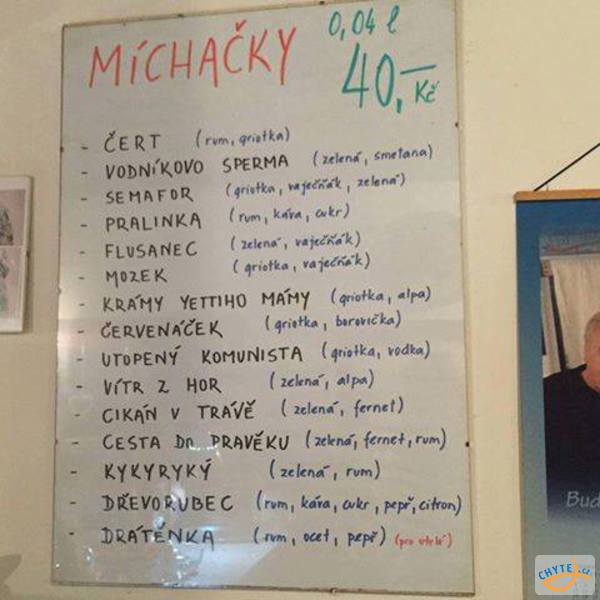 MÍCHAČKY 0,04 l
40,— Kč
- ČERT (rum, griotka)
- VODNÍKOVO SPERMA (zelená, smetana)
- SEMAFOR (griotka, vaječňák, zelená)
- PRALINKA (rum, káva, cukr)
- FLUSANEC (zelená, vaječňák)
- MOZEK (griotka, vaječňák)
- KRÁMY YETTIHO MÁMY (griotka, alpa)
- ČERVENÁČEK (griotka, borovička)
- UTOPENÝ KOMUNISTA (griotka, vodka)
- VÍTR Z HOR (zelená, alpa)
- CIKÁN V TRÁVĚ (zelená, fernet)
- CESTA DO PRAVĚKU (zelená, fernet, rum)
- KYKYRYKÝ (zelená, rum)
- DŘEVORUBEC (rum, káva, cukr, pepř, citron)
- DRÁTĚNKA (rum, ocet, pepř) (pro otrlé)
Bud
CHYTEJ.cz